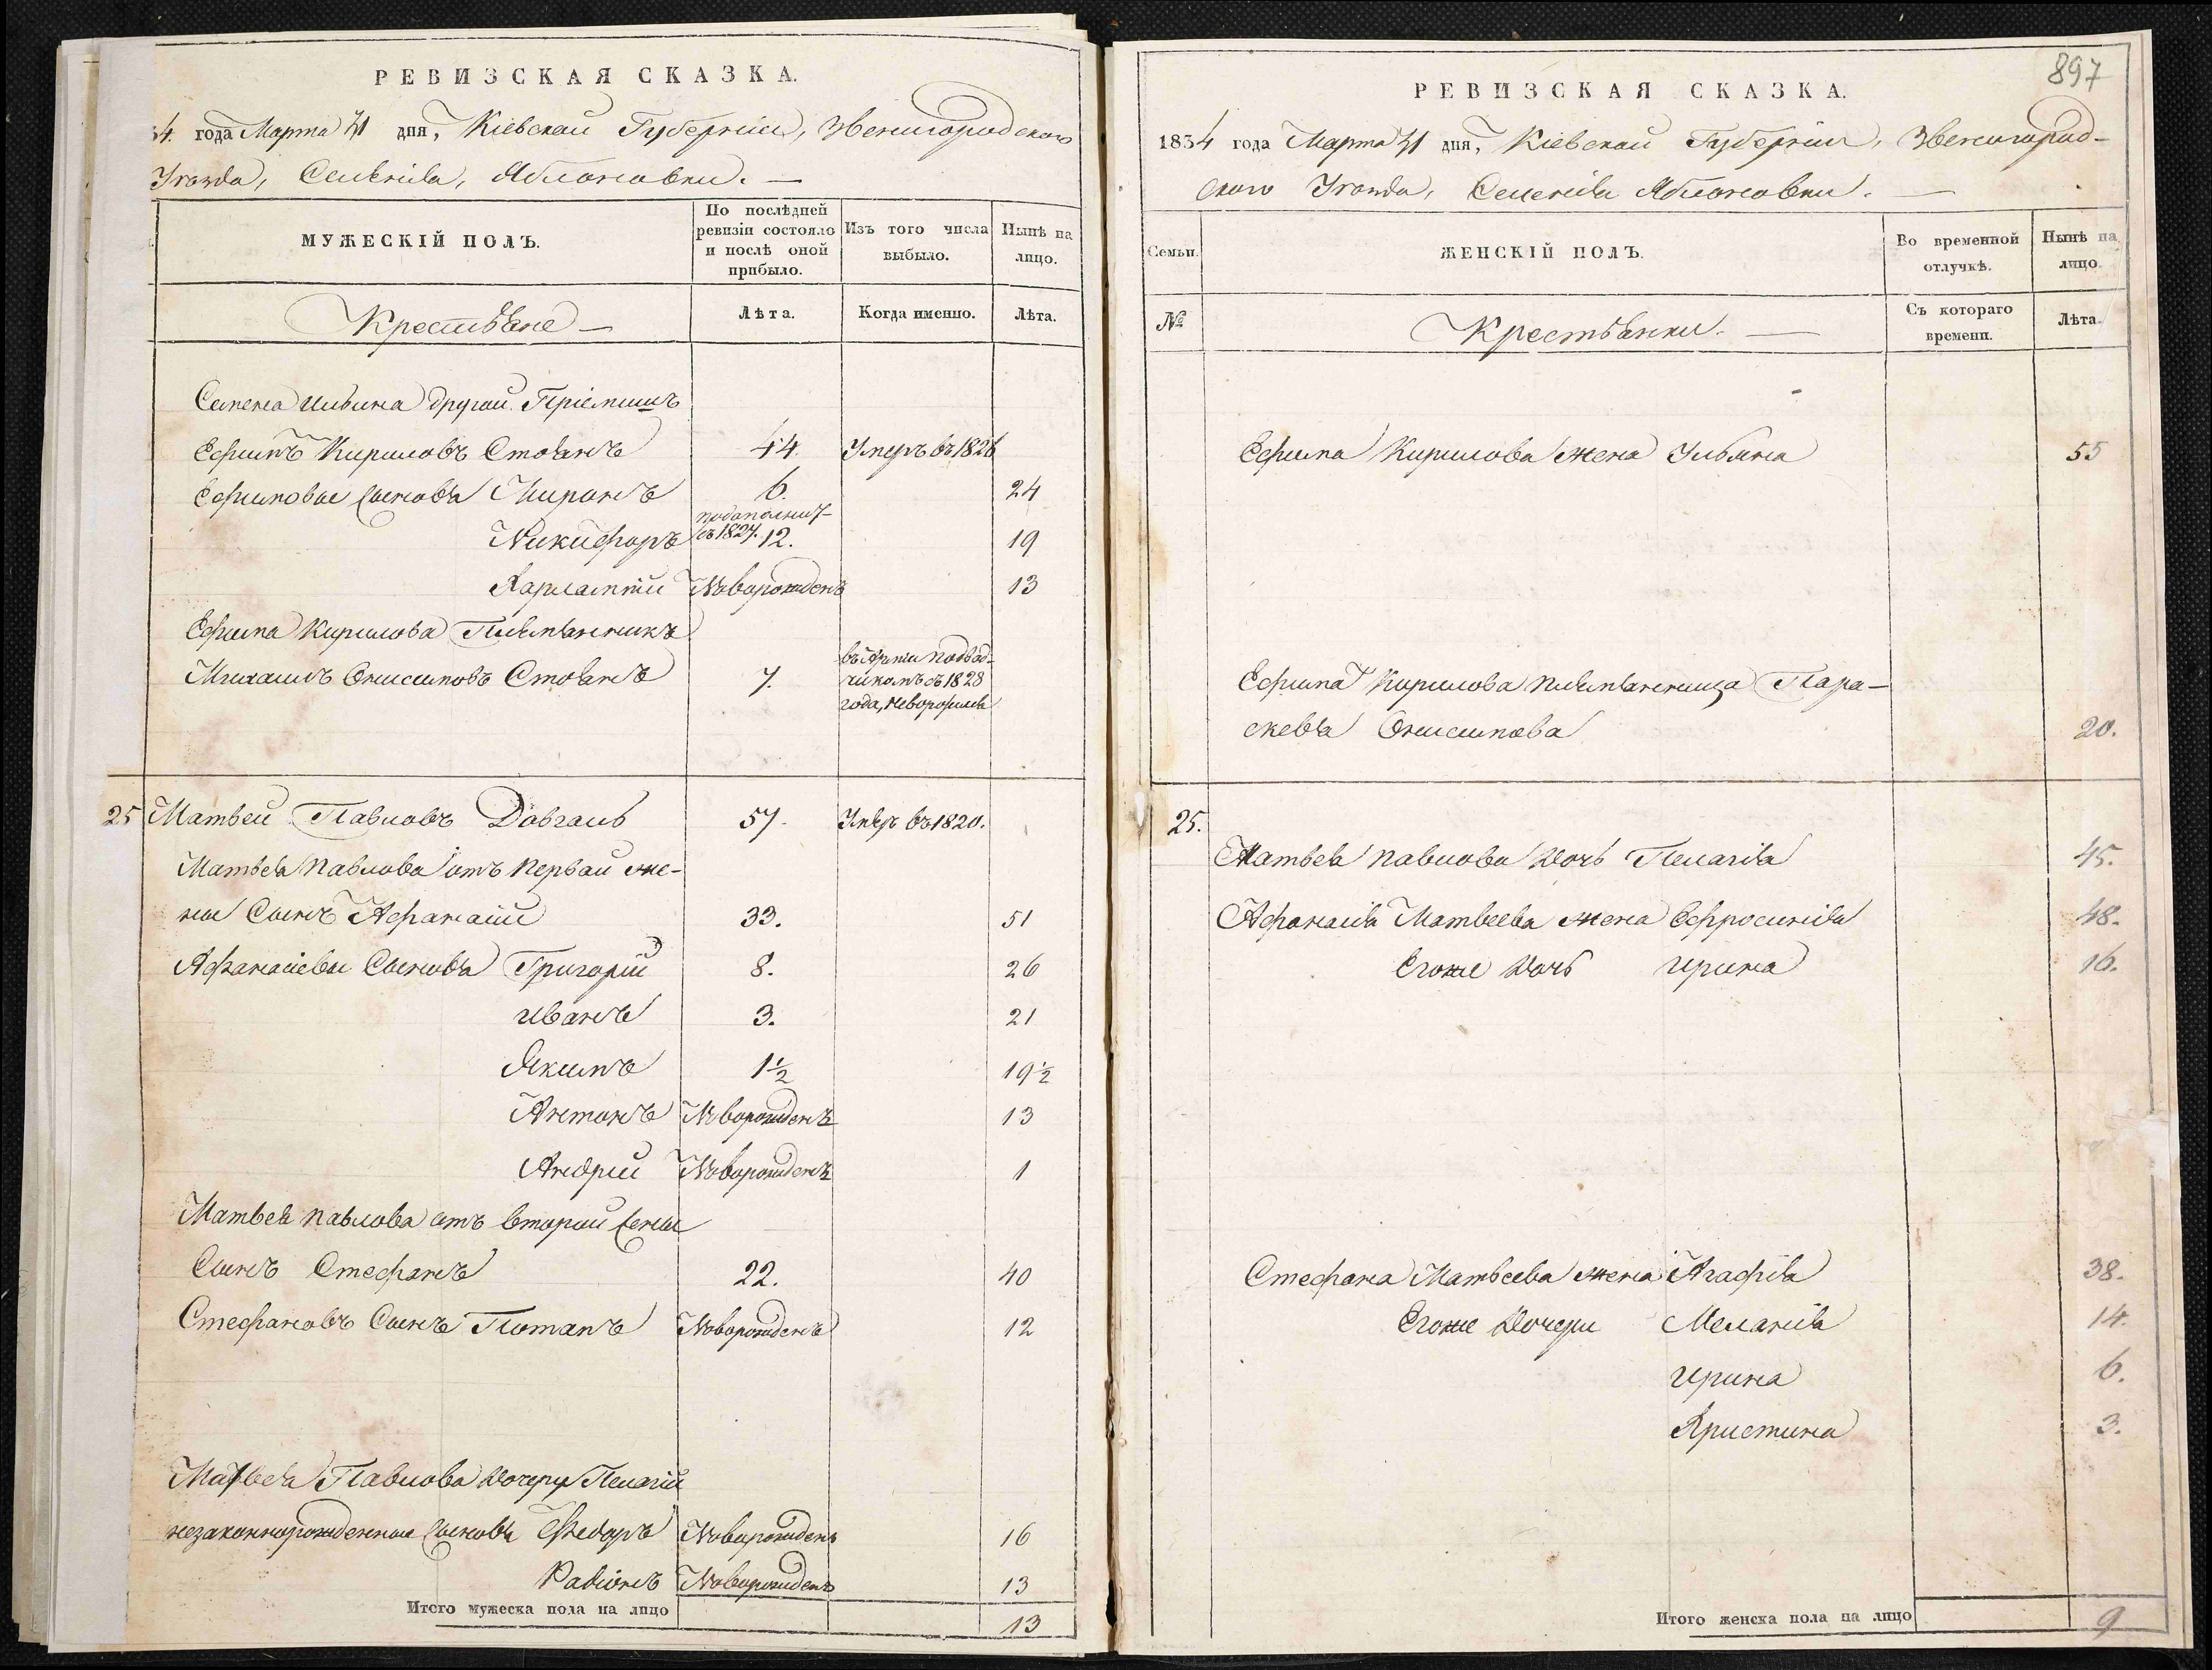 РЕВИЗСКАЯ СКАЗКА.
34. года Марта 31 дня, Кіевской Губерніи, Звенигородскаго
Уезда, Селенія, Яблоновки. —
МУЖЕСКІЙ ПОЛЪ.
По послѣдней ревизіи состояло и послѣ оной прибыло.
Изъ того числа выбыло.
Нынѣ на лицо.
Крестьяне —
Лѣта.
Когда именно.
Лѣта.
Семена Ильина другой Пріемышъ
Ефимъ Кириловъ Стоянъ 44. Умеръ въ 1826
Ефимовы сыновья Миронъ 6. 24
Никифоръ 12. 19
въ 1827.
Харлампій Новорожденъ 13
Ефима Кирилова Племянникъ
Михаилъ Онисимовъ Стоянъ 7.
въ Арміи
съ 1828
года,
25 Матвей Павловъ Довгань 57. Умеръ въ 1820.
Матвея Павлова отъ первой же-
ны Сынъ Афанасій 33. 51
Афанасіевы Сыновья Григорій 8. 26
Иванъ 3. 21
Якимъ 1½ 19½
Антонъ Новорожденъ 13
Андрій Новорожденъ 1
Матвея Павлова отъ второй жены
Сынъ Стефанъ 22. 40
Стефановъ Сынъ Потапъ Новорожденъ 12
Матвея Павлова дочери Пелагіи
незаконнорожденные сыновья Федоръ Новорожденъ 16
Радіонъ Новорожденъ 13
Итого мужеска пола на лицо 13
897
РЕВИЗСКАЯ СКАЗКА.
1834 года Марта 31 дня, Кіевской Губерніи, Звенигород-
скаго Уезда, Селенія Яблоновки. —
Семьи.
ЖЕНСКІЙ ПОЛЪ.
Во временной отлучкѣ.
Нынѣ на лицо.
№
Крестьянки. —
Съ котораго времени.
Лѣта.
Ефима Кирилова жена Ульяна 55
Ефима Кирилова племянница Пара-
скевья Онисимова 20.
25.
Матвея Павлова дочь Пелагія 45.
Афанасія Матвеева жена Ефросинія 48.
Егоже дочь Ирина 16.
Стефана Матвеева жена Агафія 38.
Егоже дочери Меланія 14.
Ирина 6.
Христина 3.
Итого женска пола на лицо 9